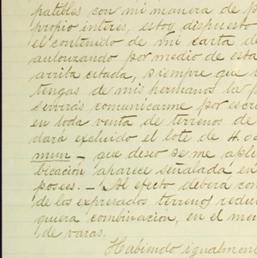 patibles con mi manera de p
propio interés, estoy dispuesto
el contenido de mi carta de
autorizando por medio de esta
arriba citada, siempre que
tengas de mis hermanos la p
servirás comunicarme por escri
en toda venta de terrenos de
dará excluido el lote de 4.0
que deseo se me apli
bicación aparece señalada en
poseés. - Al efecto deberá com
de los expresados terrenos redu
quiera combinación, en el mo
de varas.
Habiendo igualmen